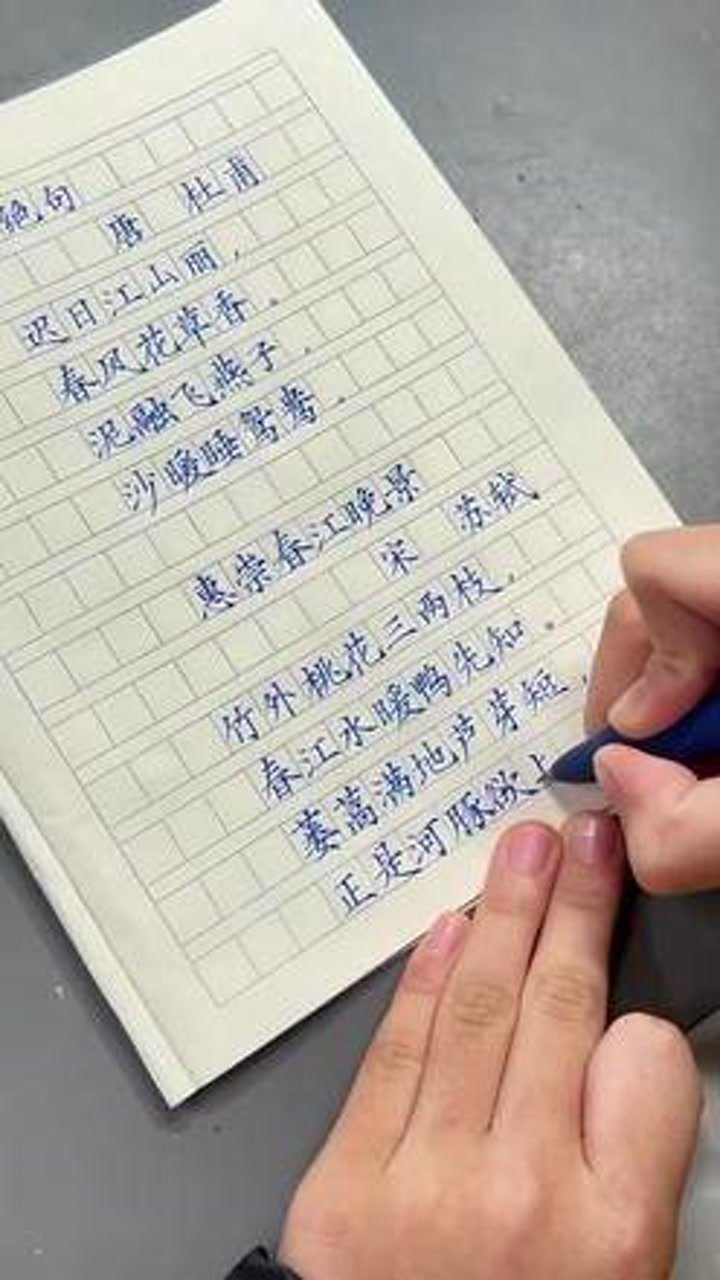 绝句
唐 杜甫
迟日江山丽，
春风花草香。
泥融飞燕子，
沙暖睡鸳鸯。
惠崇春江晚景
宋 苏轼
竹外桃花三两枝，
春江水暖鸭先知。
蒌蒿满地芦芽短，
正是河豚欲上